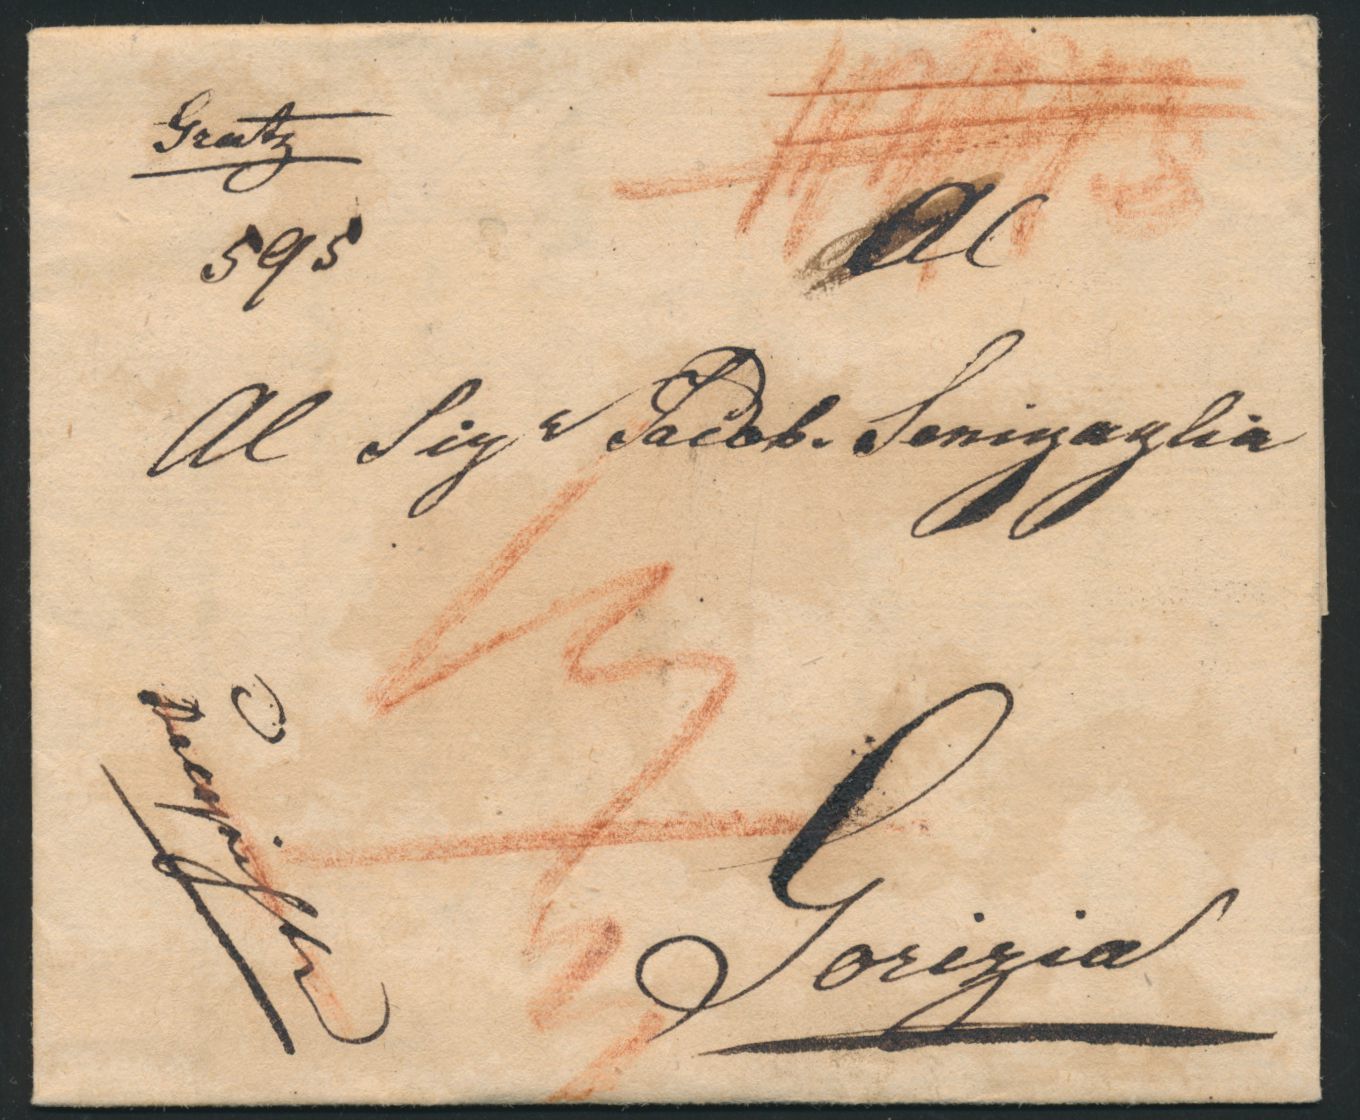 Gratz
595
Al
Al Sigr Jacob. Senigaglia
Gorizia